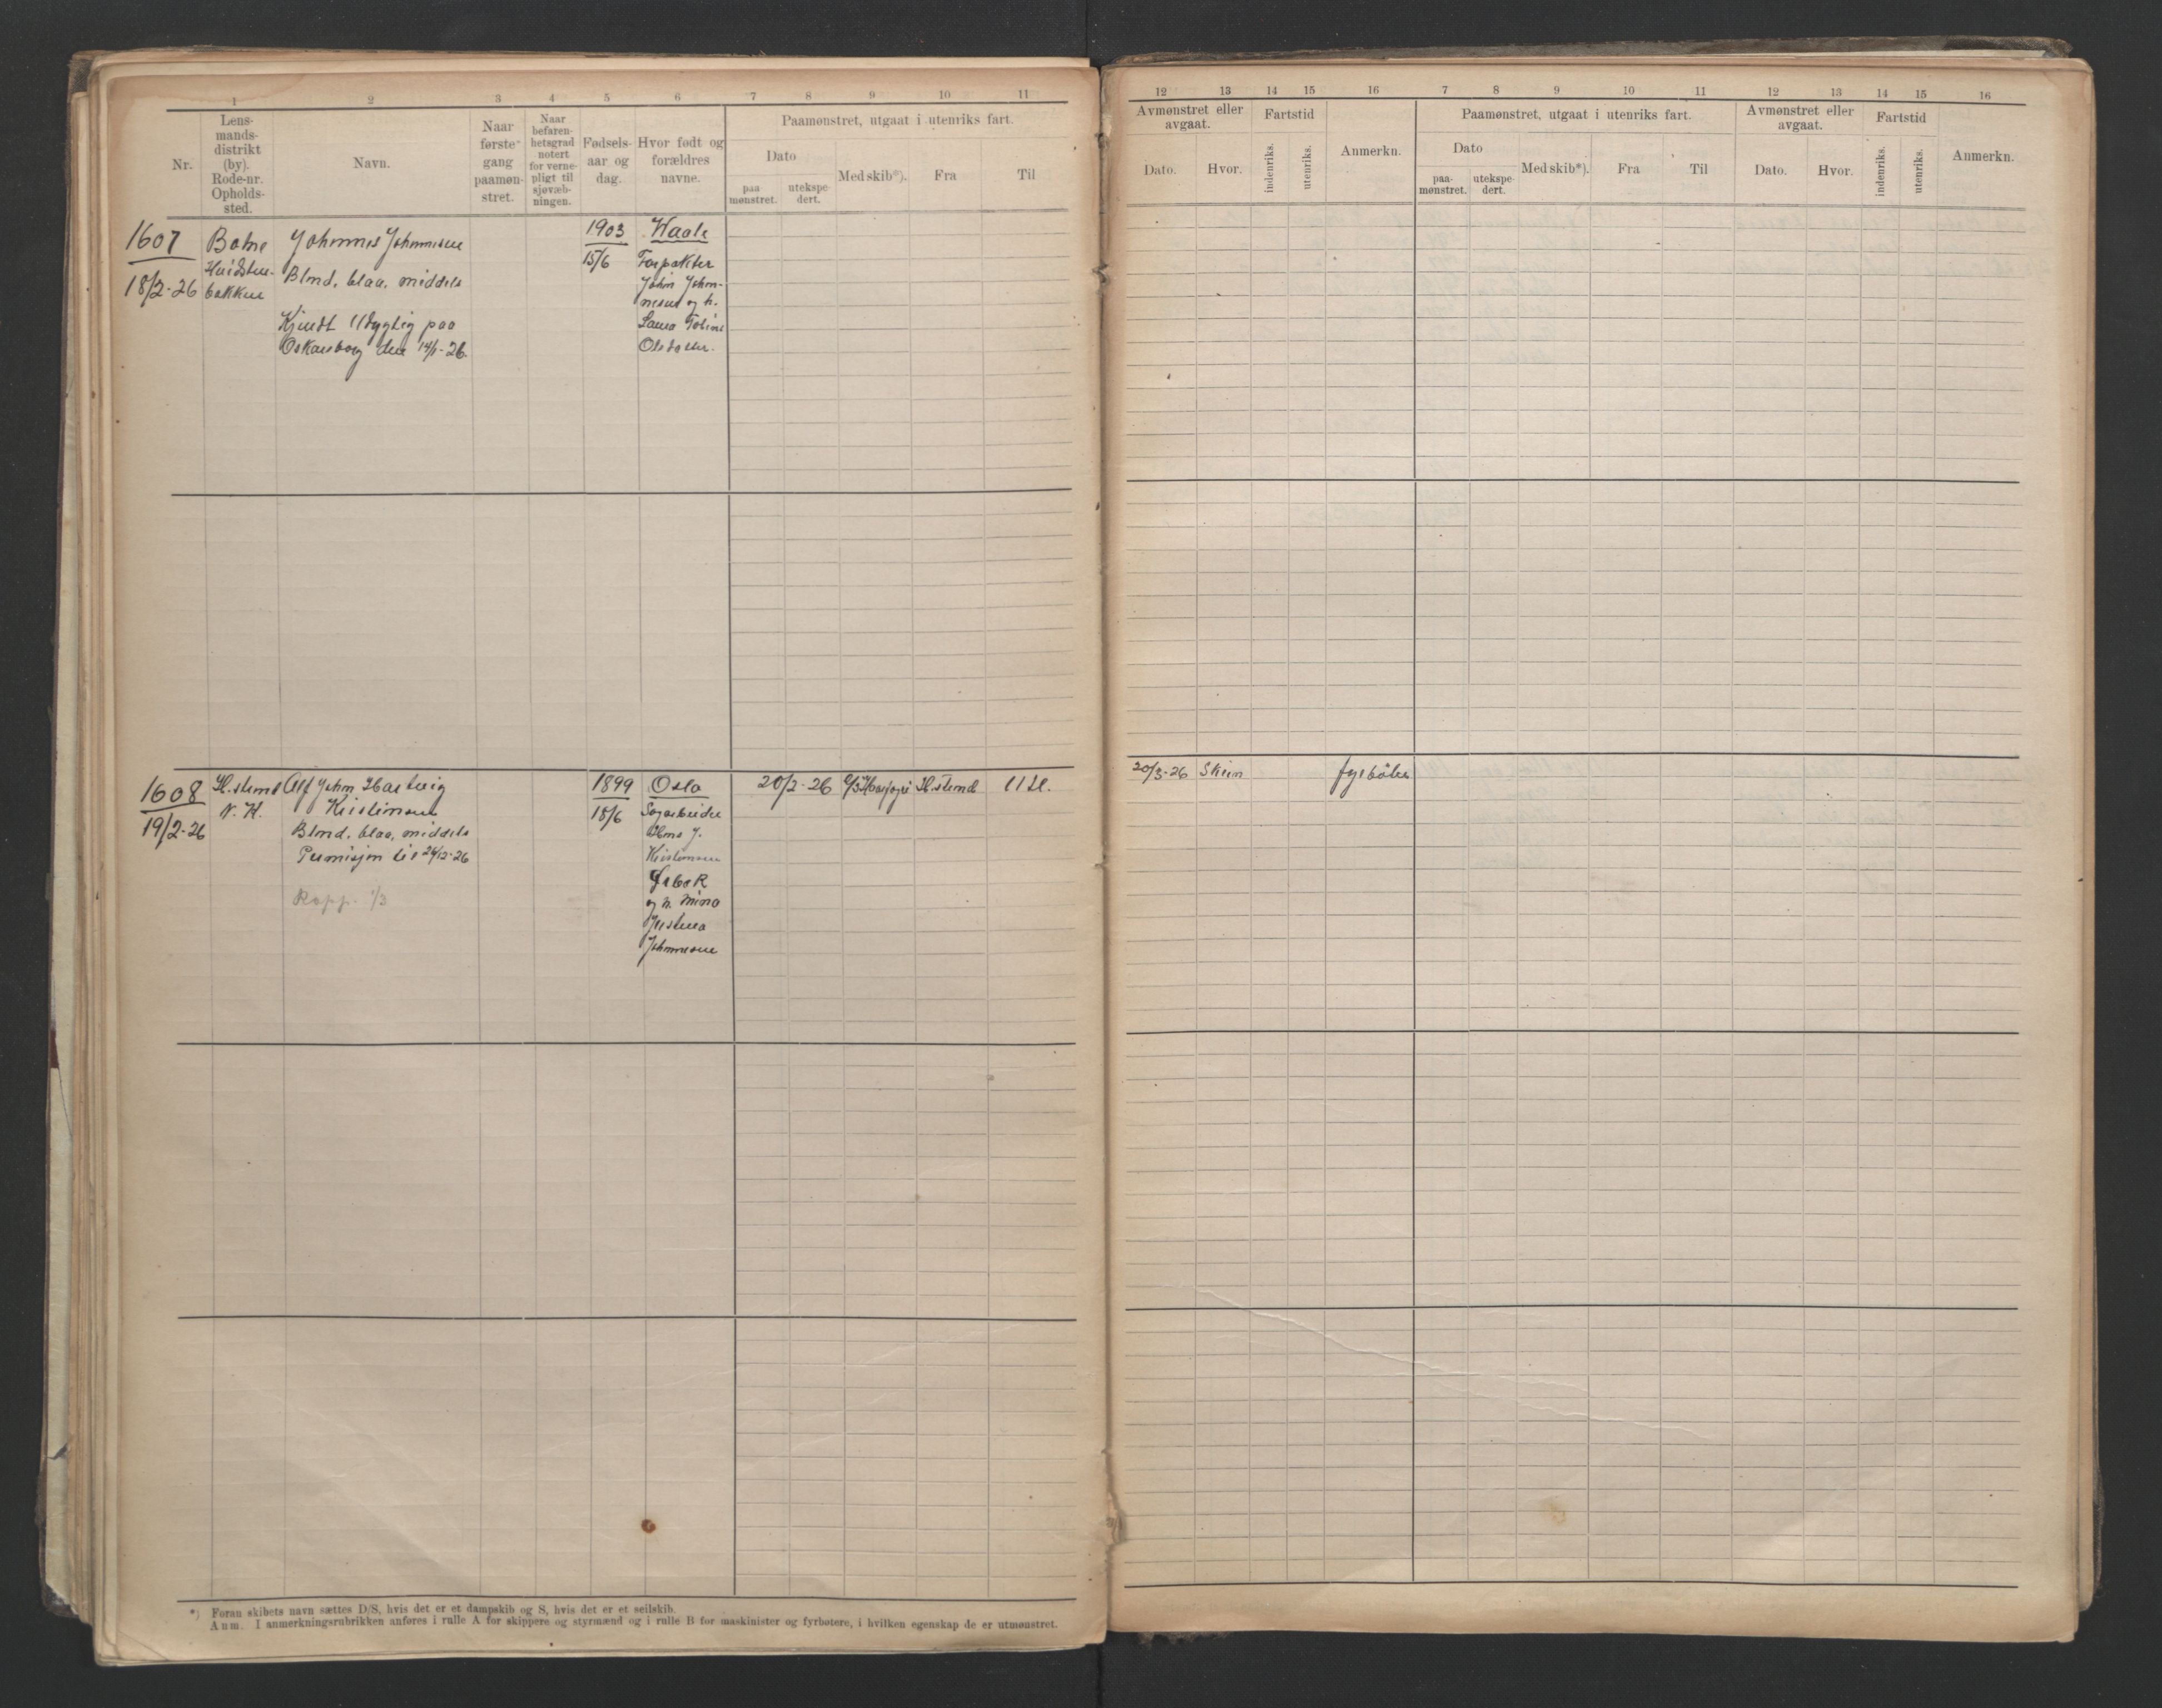 1 2 3 4 5 6 7 8 9 10 11
Nr.
Lens-
mands-
distrikt
(by).
Rode-nr.
Opholds-
sted.
Navn.
Naar
første
gang
paamøn-
stret.
Naar
befaren-
hetsgrad
notert
for verne-
pligt til
sjøvæb-
ningen.
Fødsels-
aar og
dag.
Hvor født og
forældres
navne.
Paamønstret, utgaat i utenriks fart.
Dato
paa
mønstret.
utekspe
dert.
Med skib*).
Fra
Til
1607
18/2-26
Botne
bakken
Johannes Johannesen
Blond, blaa, middels
Kjendt Udygtig paa
Oskarsborg den 14/1-26.
1903
15/6
Vaale
Forpakter
John Johan-
nesen og h.
Olsdatter.
1608
19/2-26
H.strand
N. H.
Alf John Hartvig
Kristensen
Blond, blaa, middels
Permisjon til 24/12-26
Rapp. 1/3
1899
18/6
Oslo
Sagarbeider
Hans J.
Kristensen
og h. Mina
Johannesen
20/2-26
H.strand
Utl.
*) Foran skibets navn sættes D/S, hvis det er et dampskib og S, hvis det er et seilskib.
Anm. I anmerkningsrubrikken anføres i rulle A for skippere og styrmænd og i rulle B for maskinister og fyrbøtere, i hvilken egenskap de er utmønstret.
12 13 14 15 16 7 8 9 10 11 12 13 14 15 16
Avmønstret eller
avgaat.
Dato.
Hvor.
Fartstid
indenriks.
utenriks.
Anmerkn.
Paamønstret, utgaat i utenriks fart.
Dato
paa-
mønstret.
utekspe-
dert.
Med skib*).
Fra
Til
Avmønstret eller
avgaat.
Dato.
Hvor.
Fartstid
indenriks.
utenriks.
Anmerkn.
20/3-26 Skien fyrbøter